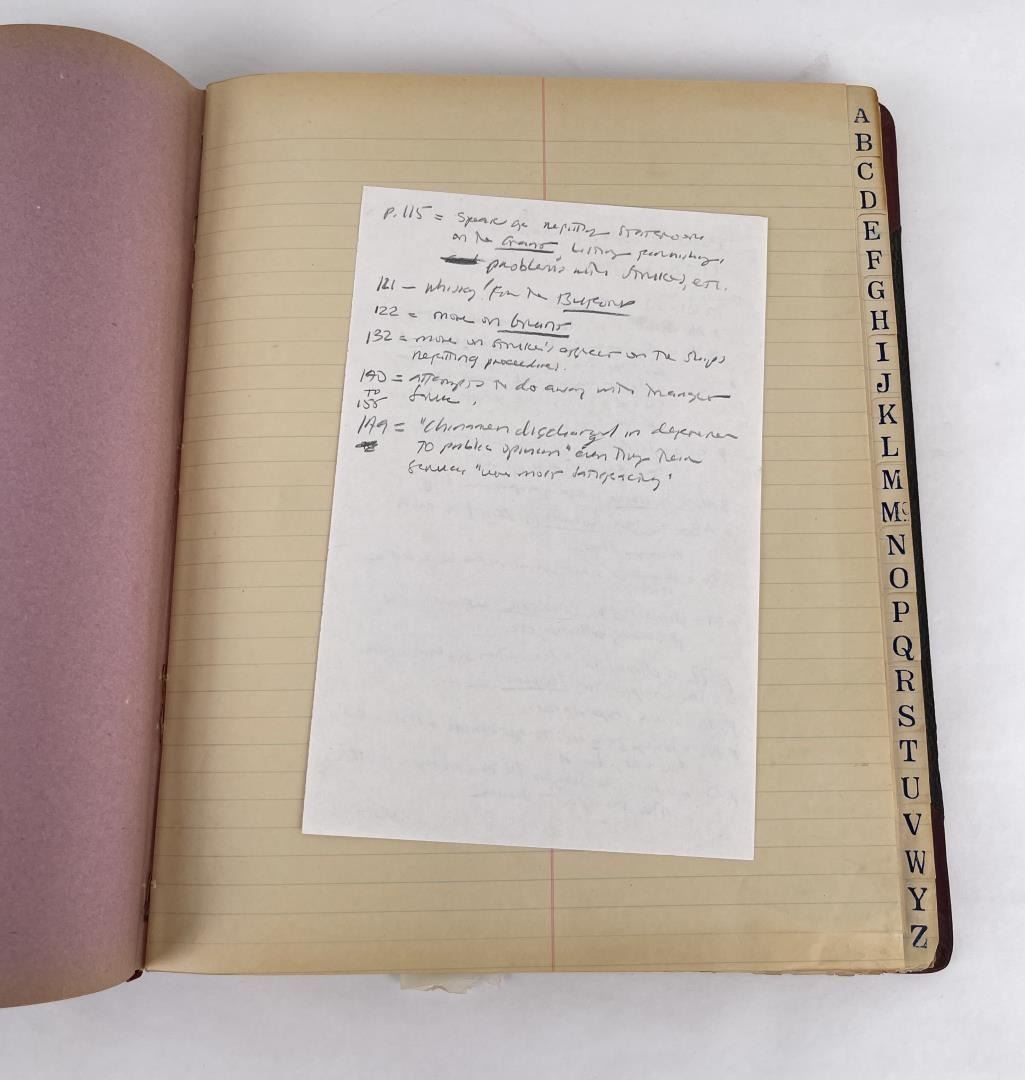 p. 115 = speaks of refitting staterooms
on the Grant listing furnishings,
problems with strikes, etc.
121 - whisky for the Buford
122 = more on Grant
132 = more on strike's effect on the ships
refitting procedures.
140 = attempts to do away with
TO
155
149 = "Chinamen discharged in deference
TO public opinion" even though their
services "were most satisfactory"
A
B
C
D
E
F
G
H
I
J
K
L
M
Mc
N
O
P
Q
R
S
T
U
V
W
Y
Z